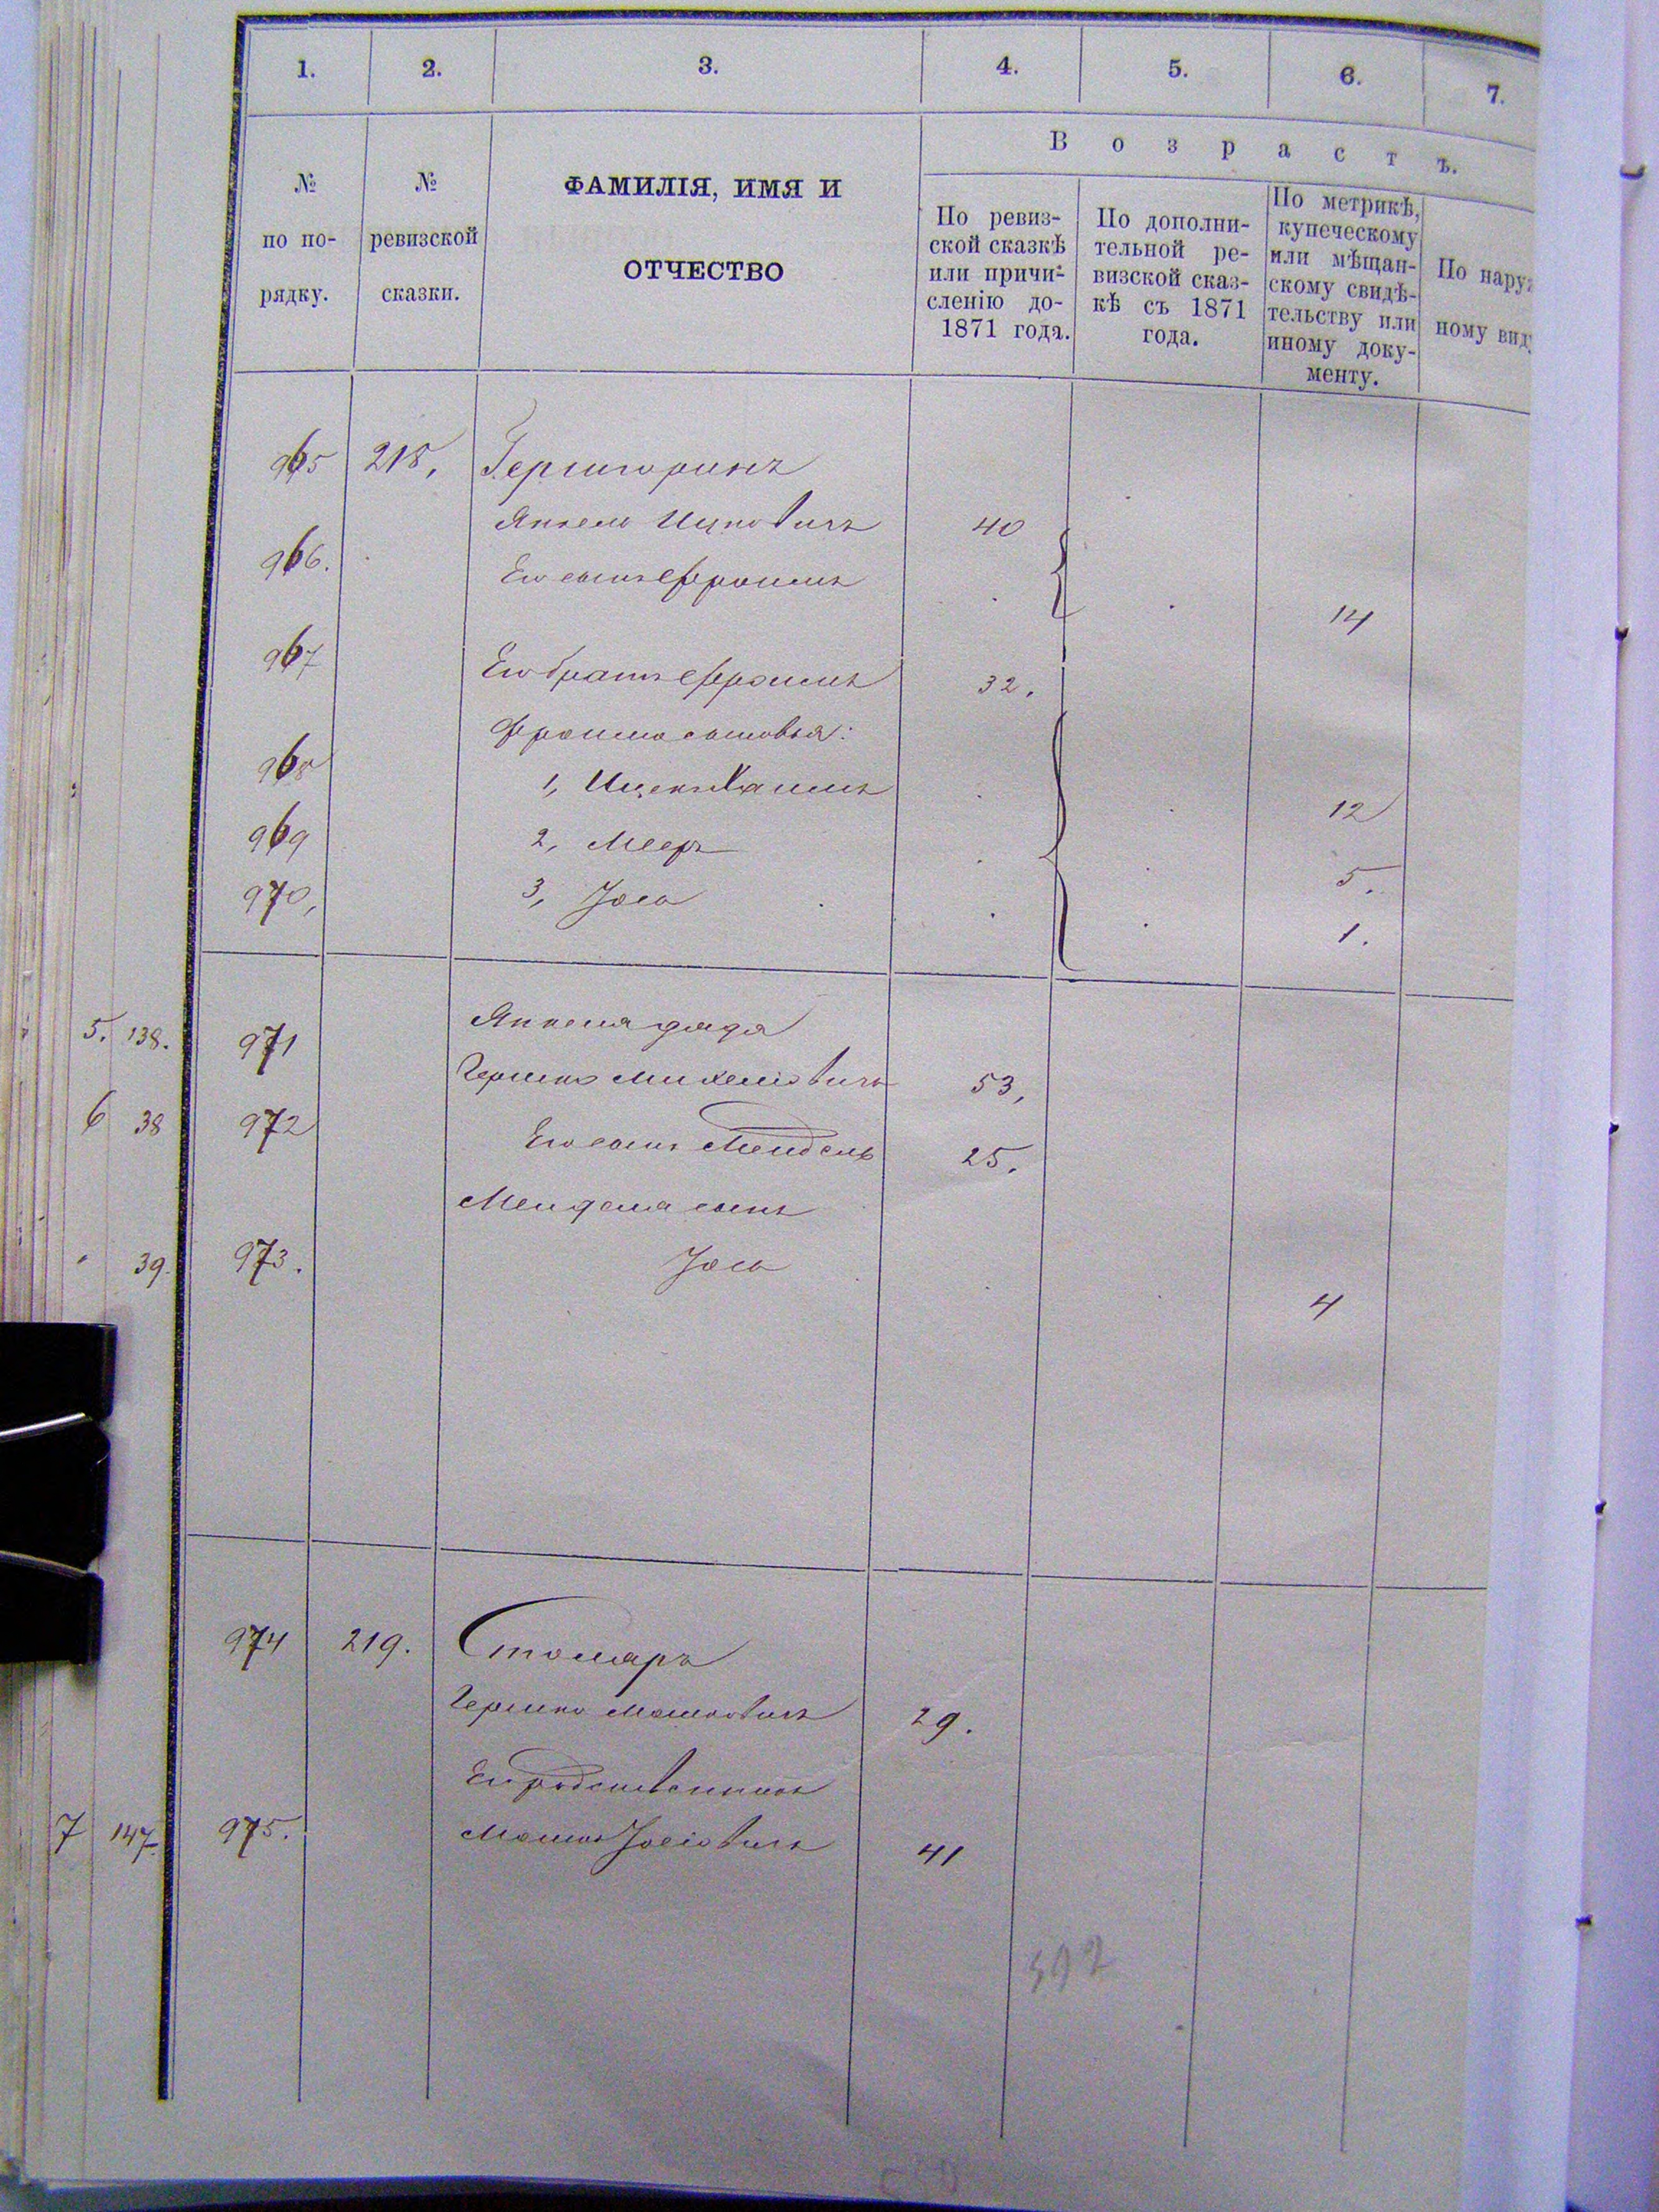 1. 2. 3. 4. 5. 6. 7.
№ по по-рядку.
№ ревизской сказки.
ФАМИЛІЯ, ИМЯ И
ОТЧЕСТВО
Возрастъ.
По ревиз-
ской сказкѣ
или причи-
сленію до-
1871 года.
По дополни-
тельной ре-
визской сказ-
кѣ съ 1871
года.
По метрикѣ,
купеческому
или мѣщан-
скому свидѣ-
тельству или
иному доку-
менту.
По наруж
ному вид
965 218, Гершгоринъ
Янкель Ицковичъ 40
966. Его сынъ Фроимъ 14
967 Его братъ Фроимъ 32.
Фроима сыновья:
968 1, Ицекъ Хаимъ 12
969 2, Мееръ 5.
970, 3, Іось 1.
5. 138. 971 Янкеля дядя
Гершко Михелiовичъ 53,
6 38 972 Его сынъ Мендель 25.
Менделя сынъ
39. 973. Іось 4
974 219. Столяръ
Гершко Мошковичъ 29.
Его родственникъ
7 147 975. Мошко Іосіовичъ 41